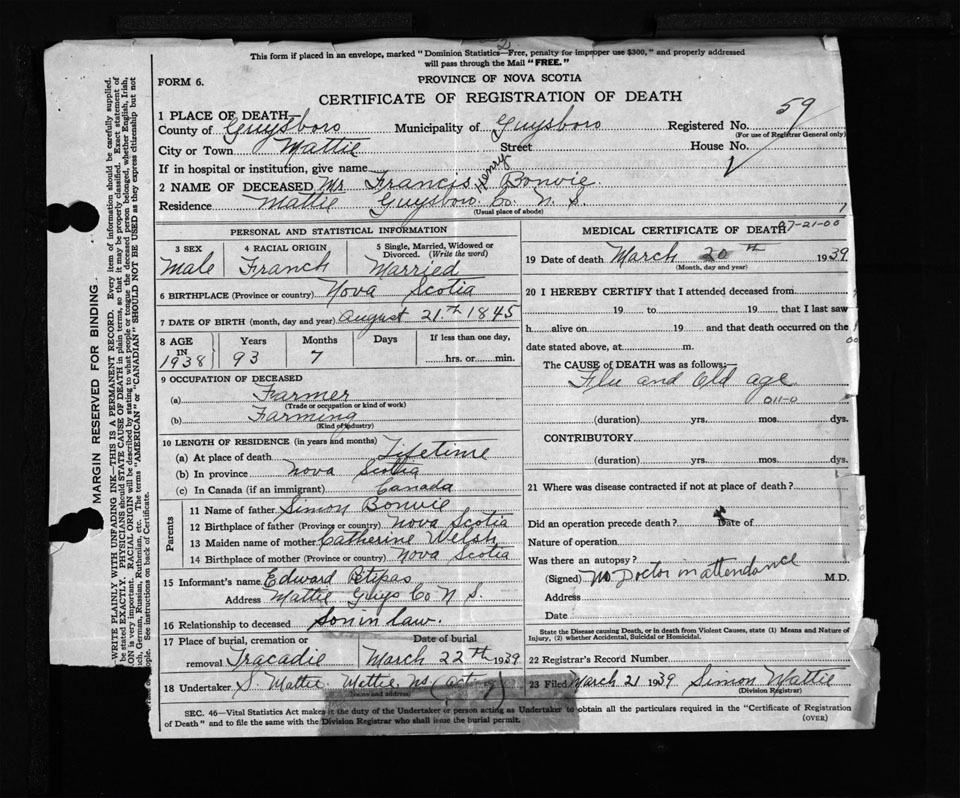 This form if placed in an envelope, marked "Dominion Statistics—Free, penalty for improper use $300," and properly addressed
will pass through the Mail "FREE."
FORM 6.
PROVINCE OF NOVA SCOTIA
CERTIFICATE OF REGISTRATION OF DEATH
59
1 PLACE OF DEATH
County of Guysboro Municipality of Guysboro Registered No.
(For use of Registrar General only)
City or Town Mattie Street House No.
If in hospital or institution, give name
2 NAME OF DECEASED Mr Francis Henry Bonvie
Residence Mattie Guysboro Co. N. S.
(Usual place of abode)
PERSONAL AND STATISTICAL INFORMATION
3 SEX 4 RACIAL ORIGIN 5 Single, Married, Widowed or Divorced. (Write the word)
Male Franch Married
6 BIRTHPLACE (Province or country) Nova Scotia
7 DATE OF BIRTH (month, day and year) August 21th 1845
8 AGE Years Months Days If less than one day,
IN 1938 93 7 hrs. or min.
9 OCCUPATION OF DECEASED
(a) Farmer
(Trade or occupation or kind of work)
(b) Farming
(Kind of industry)
10 LENGTH OF RESIDENCE (in years and months)
(a) At place of death Lifetime
(b) In province Nova Scotia
(c) In Canada (if an immigrant) Canada
Parents
11 Name of father Simon Bonvie
12 Birthplace of father (Province or country) Nova Scotia
13 Maiden name of mother Catherine Welsh
14 Birthplace of mother (Province or country) Nova Scotia
15 Informant's name Edward Petipas
Address Mattie Guys Co N S.
16 Relationship to deceased Son in law.
17 Place of burial, cremation or Date of burial
removal Tracadie March 22th 1939
18 Undertaker S Mattie Mattie NS (acting)
(Name and address)
MEDICAL CERTIFICATE OF DEATH
97-21-00
19 Date of death March 20th 1939
(Month, day and year)
20 I HEREBY CERTIFY that I attended deceased from
19 to 19 that I last saw
h alive on 19 and that death occurred on the
date stated above, at m.
The CAUSE OF DEATH was as follows:
Flu and Old age
011-0
(duration) yrs. mos. dys.
CONTRIBUTORY
(duration) yrs. mos. dys.
21 Where was disease contracted if not at place of death?
Did an operation precede death? Date of
Nature of operation
Was there an autopsy?
(Signed) No Doctor in attendance M.D.
Address
Date
State the Disease causing Death, or in death from Violent Causes, state (1) Means and Nature of
Injury, (2) whether Accidental, Suicidal or Homicidal.
22 Registrar's Record Number
23 Filed March 21 1939 Simon Mattie
(Division Registrar)
SEC. 46—Vital Statistics Act makes it the duty of the Undertaker or person acting as Undertaker to obtain all the particulars required in the "Certificate of Registration
of Death" and to file the same with the Division Registrar who shall issue the burial permit.
(OVER)
MARGIN RESERVED FOR BINDING.
WRITE PLAINLY WITH UNFADING INK—THIS IS A PERMANENT RECORD. Every item of information should be carefully supplied.
be stated EXACTLY. PHYSICIANS should STATE CAUSE OF DEATH in plain terms, so that it may be properly classified. Exact statement of
ON is very important. RACIAL ORIGIN will be described by stating to what people or tongue the deceased person belonged, whether English, Irish,
German, Russian, Ruthenian, etc. The terms "AMERICAN" or "CANADIAN" SHOULD NOT BE USED as they express citizenship but not
See instructions on back of Certificate.